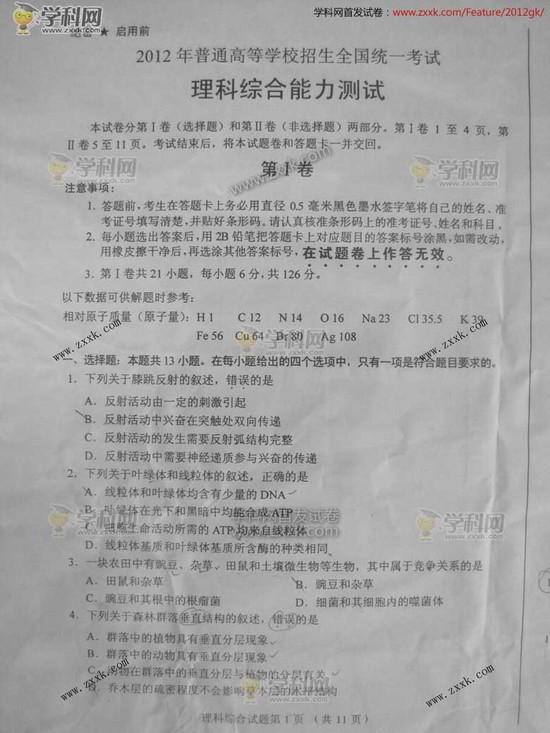 学科网首发试卷：www.zxxk.com/Feature/2012gk/
★ 启用前
2012 年普通高等学校招生全国统一考试
理科综合能力测试
本试卷分第Ⅰ卷（选择题）和第Ⅱ卷（非选择题）两部分。第Ⅰ卷 1 至 4 页，第
Ⅱ卷 5 至 11 页。考试结束后，将本试题卷和答题卡一并交回。
第Ⅰ卷
注意事项：
1. 答题前，考生在答题卡上务必用直径 0.5 毫米黑色墨水签字笔将自己的姓名、准
考证号填写清楚，并贴好条形码。请认真核准条形码上的准考证号、姓名和科目。
2. 每小题选出答案后，用 2B 铅笔把答题卡上对应题目的答案标号涂黑，如需改动，
用橡皮擦干净后，再选涂其他答案标号，在试题卷上作答无效。
3. 第Ⅰ卷共 21 小题，每小题 6 分，共 126 分。
以下数据可供解题时参考：
相对原子质量（原子量）：H 1 C 12 N 14 O 16 Na 23 Cl 35.5 K 39
Fe 56 Cu 64 Br 80 Ag 108
一、选择题：本题共 13 小题。在每小题给出的四个选项中，只有一项是符合题目要求的。
1. 下列关于膝跳反射的叙述，错误的是
A. 反射活动由一定的刺激引起
B. 反射活动中兴奋在突触处双向传递
C. 反射活动的发生需要反射弧结构完整
D. 反射活动中需要神经递质参与兴奋的传递
2. 下列关于叶绿体和线粒体的叙述，正确的是
A. 线粒体和叶绿体均含有少量的 DNA
B. 叶绿体在光下和黑暗中均能合成 ATP
C. 细胞生命活动所需的 ATP 均来自线粒体
D. 线粒体基质和叶绿体基质所含酶的种类相同
3. 一块农田中有豌豆、杂草、田鼠和土壤微生物等生物，其中属于竞争关系的是
A. 田鼠和杂草 B. 豌豆和杂草
C. 豌豆和其根中的根瘤菌 D. 细菌和其细胞内的噬菌体
4. 下列关于森林群落垂直结构的叙述，错误的是
A. 群落中的植物具有垂直分层现象
B. 群落中的动物具有垂直分层现象
C. 动物在群落中的垂直分层与植物的分层有关
D. 乔木层的疏密程度不会影响草本层的水平结构
理科综合试题第 1 页 （共 11 页）
学科网
www.zxxk.com
学科网首发试卷